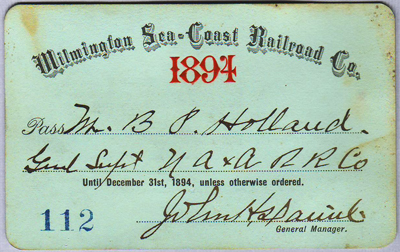 Wilmington Sea-Coast Railroad Co.
1894
Pass Mr. B P. Holland.
Genl Supt N A & A R R Co
Until December 31st, 1894, unless otherwise ordered.
112 John H
General Manager.